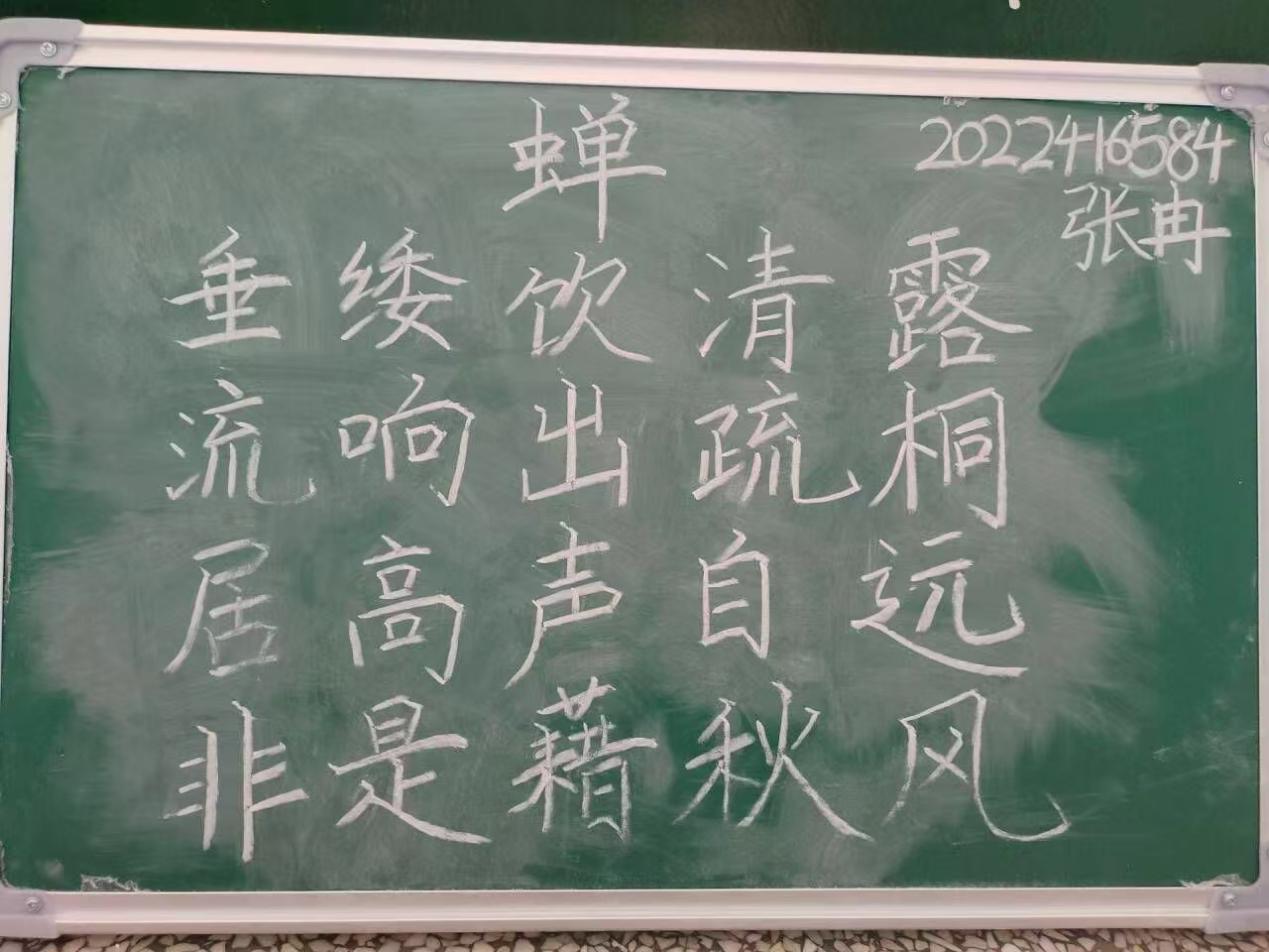 蝉
2022416584
张冉
垂緌饮清露
流响出疏桐
居高声自远
非是藉秋风